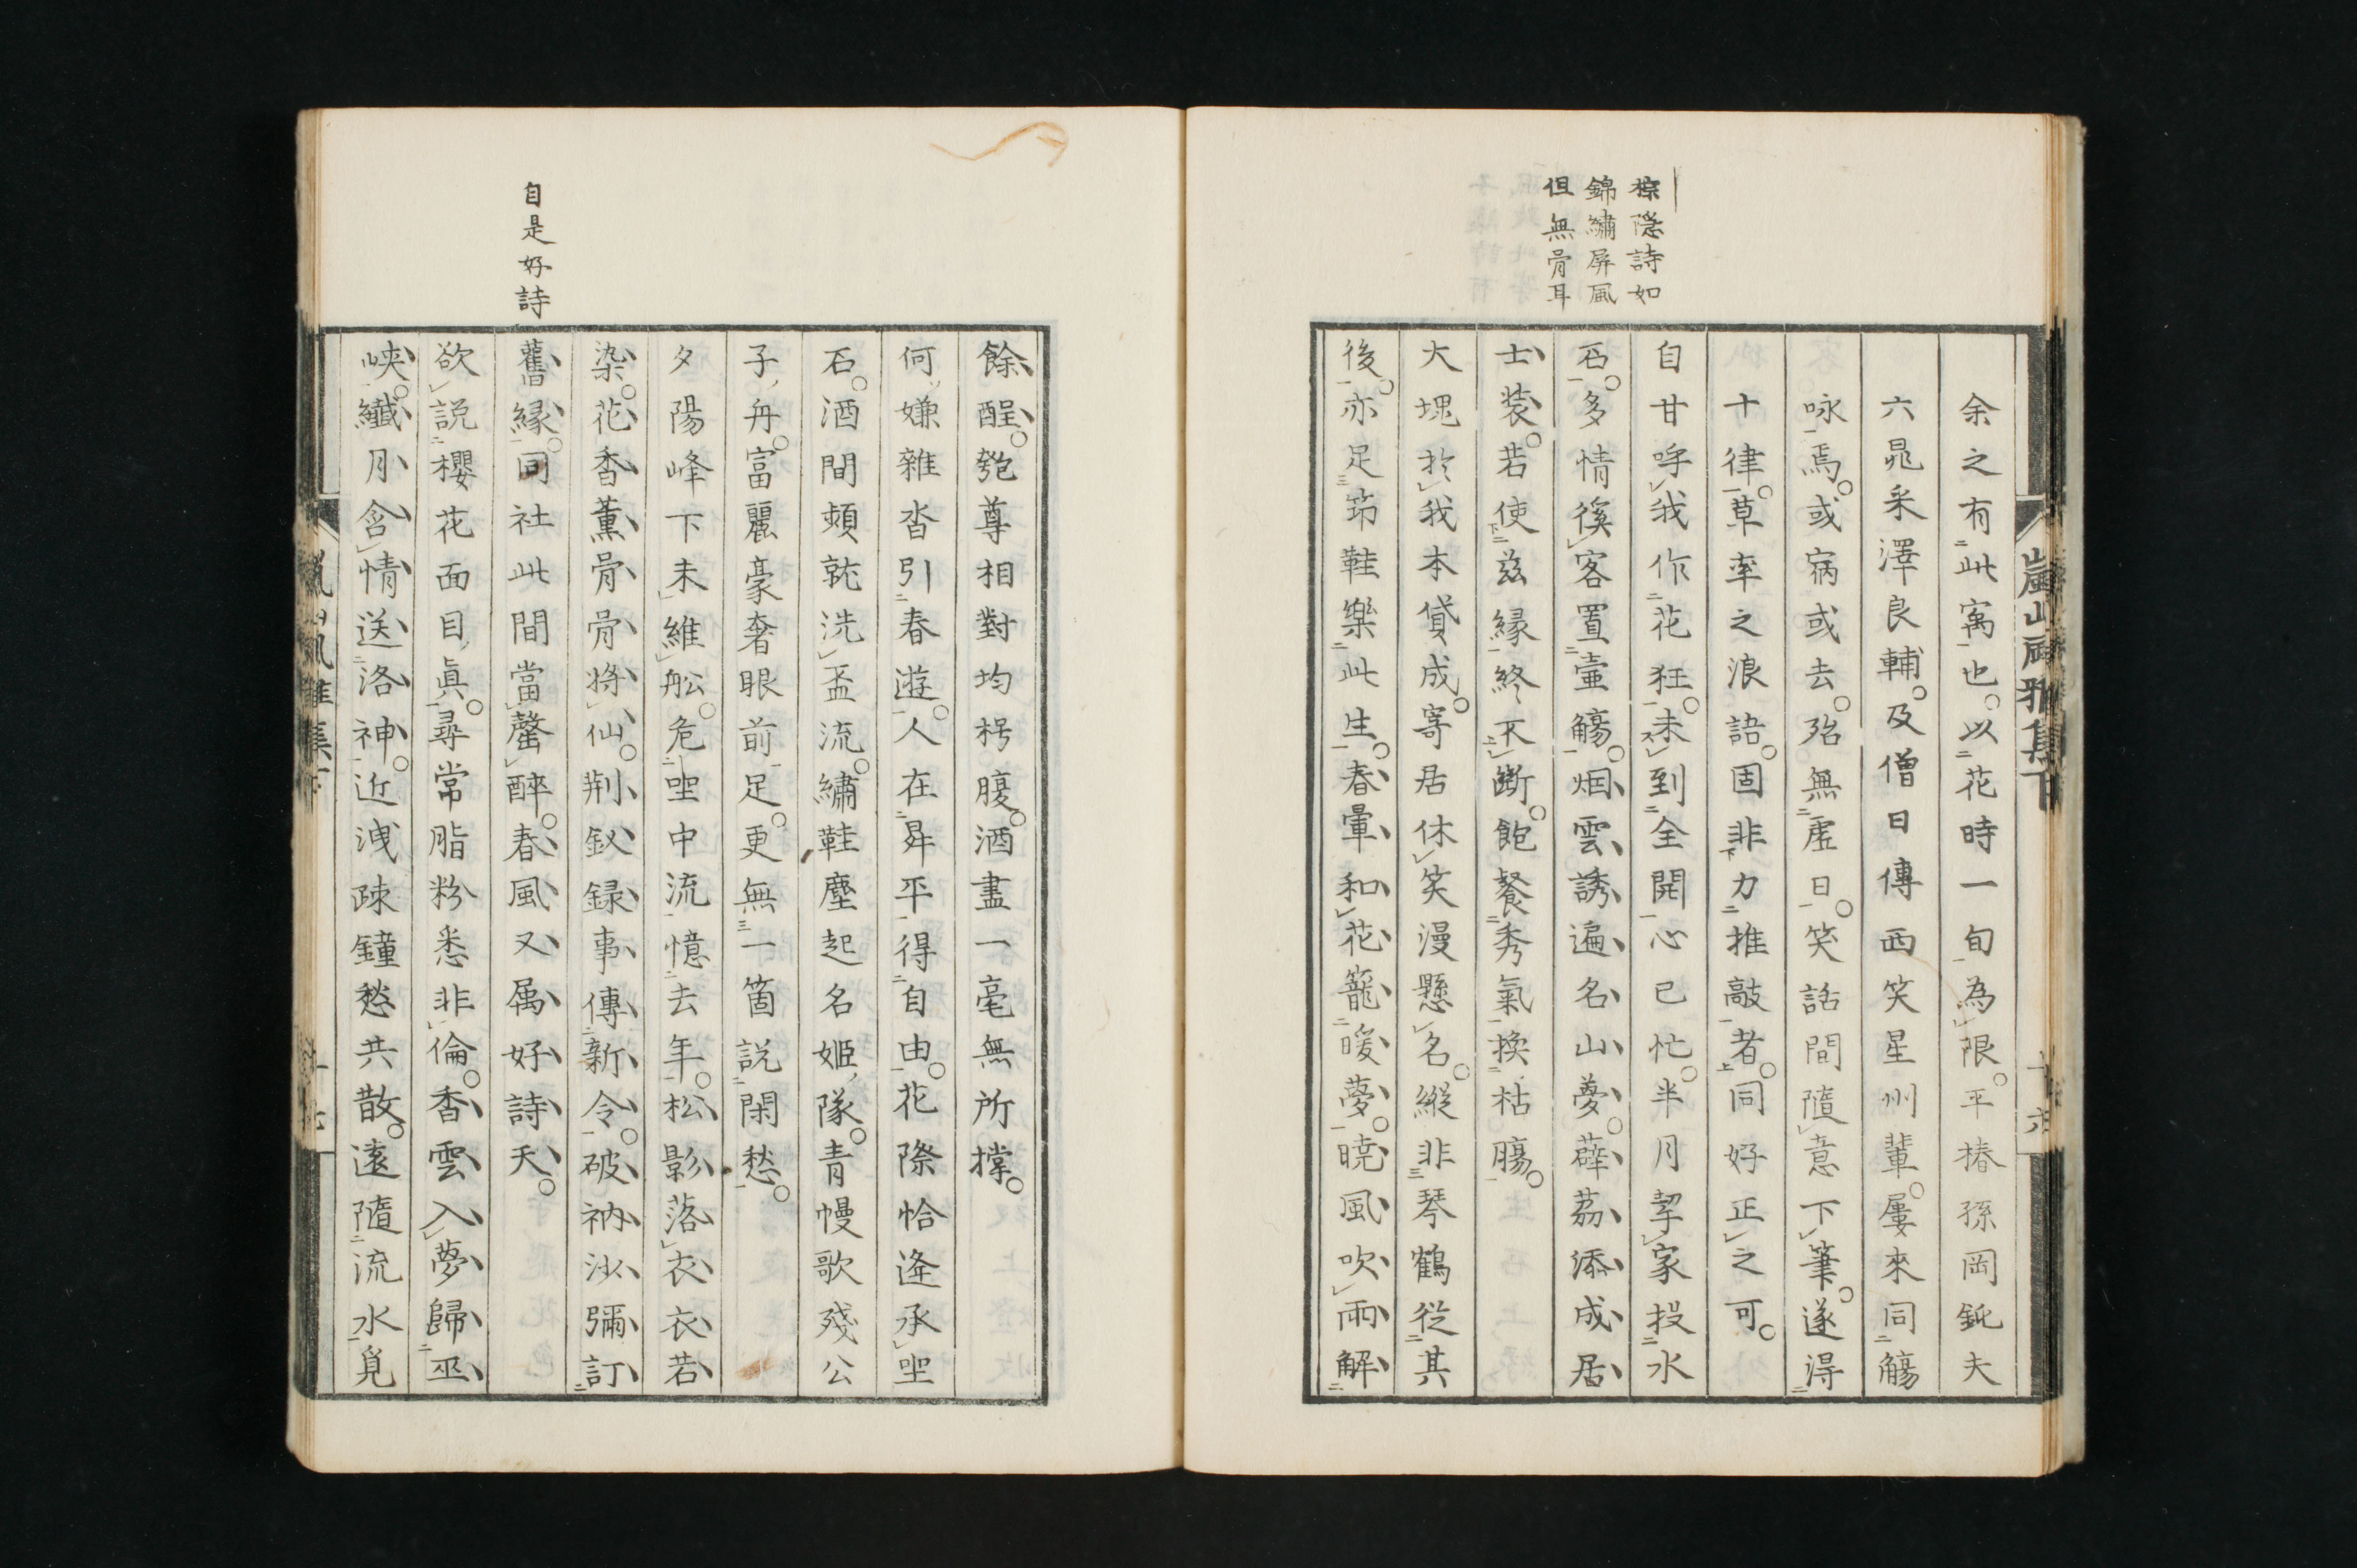 棕隱詩如
錦繡屏風
但無骨耳
嵐山風雅集下
十六
余之有此寓也。以花時一旬為限。平椿孫岡鈍夫
六晁采澤良輔。及僧日傳西笑星州輩。屢來同觴
咏焉。或病或去。殆無虛日。笑話間隨意下筆。遂得
十律。草率之浪語。固非力推敲者。同好正之可。
自甘呼我作花狂。未到全開心已忙。半月挈家投水
石。多情徯客置壷觴。烟雲誘遍名山夢。薜荔添成居
士裝。若使茲緣終不斷。飽餐秀氣換枯膓。
大塊於我本貸成。寄居休笑漫懸名。縱非琴鶴從其
後。亦足笻鞋樂此生。春暈和花籠暖夢。曉風吹雨解
餘酲。匏尊相對均枵腹。酒盡一毫無所撑。
何嫌雜沓引春遊。人在昇平得自由。花際恰逢承坐
石。酒間頻就洗盃流。繡鞋塵起名姬隊。青幔歌殘公
子舟。富麗豪奢眼前足。更無一箇説閑愁。
夕陽峰下未維舩。危坐中流憶去年。松影落衣衣若
染。花香薰骨骨將仙。荆釵録事傳新令。破衲沙彌訂
舊緣。同社此間當罄醉。春風又属好詩天。
自是好詩
欲説櫻花面目眞。尋常脂粉悉非倫。香雲入夢歸巫
峽。纖月含情送洛神。近洩疎鐘愁共散。遠隨流水覓
嵐山風雅集下
十七